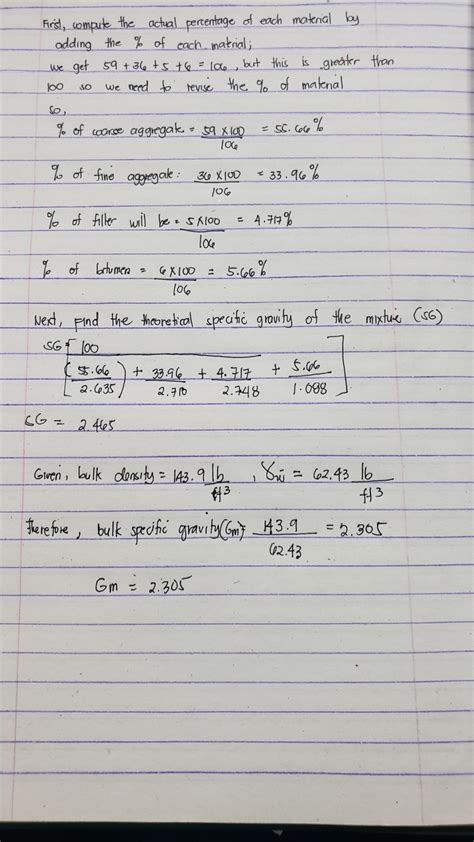 First, compute the actual percentage of each material by
adding the % of each matrial;
we get 59 + 36 + 5 + 6 = 106, but this is greater than
100 so we need to revise the % of material
so,
% of coarse aggregate = 59 x 100 / 106 = 55.66%
% of fine aggregate: 36 x 100 / 106 = 33.96%
% of filter will be = 5 x 100 / 106 = 4.717%
% of bitumen = 6 x 100 / 106 = 5.66%
Next, find the theoretical specific gravity of the mixture (SG)
SG = [100 / (55.66 / 2.635) + 33.96 / 2.710 + 4.717 / 2.748 + 5.66 / 1.088]
SG = 2.465
Given, bulk density = 143.9 lb / ft3, γw = 62.43 lb / ft3
therefore, bulk specific gravity (Gm) = 143.9 / 62.43 = 2.305
Gm = 2.305